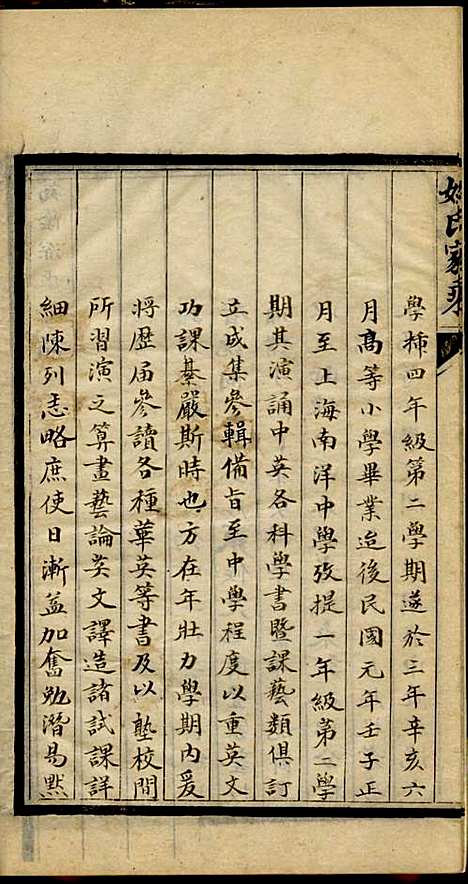 姚氏家乘
學插四年級第二學期遂於三年辛亥六
月高等小學畢業迨後民國元年壬子正
月至上海南洋中學攷提一年級第二學
期其演誦中英各科學書暨課藝類俱訂
立成集參輯備旨至中學程度以重英文
功課綦嚴斯時也方在年壯力學期內爰
將歷届參讀各種華英等書及以塾校間
所習演之算畫藝論英文譯造諸試課詳
細陳列悉略庶使日漸益加奮勉潛易默